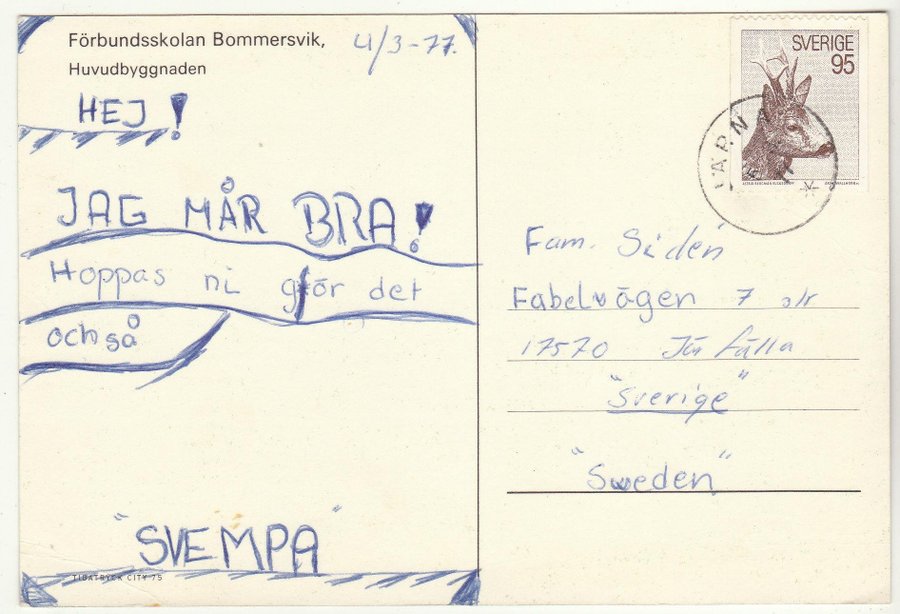 Förbundsskolan Bommersvik,
Huvudbyggnaden
4/3-77.
HEJ!
JAG MÅR BRA!
Hoppas ni gör det
också
"SVEMPA"
TIDATRYCK CITY 75
SVERIGE
95
JÄRNA
Fam. Sidén
Fabelvägen 7 
17570 Järfälla
"Sverige"
"Sweden"